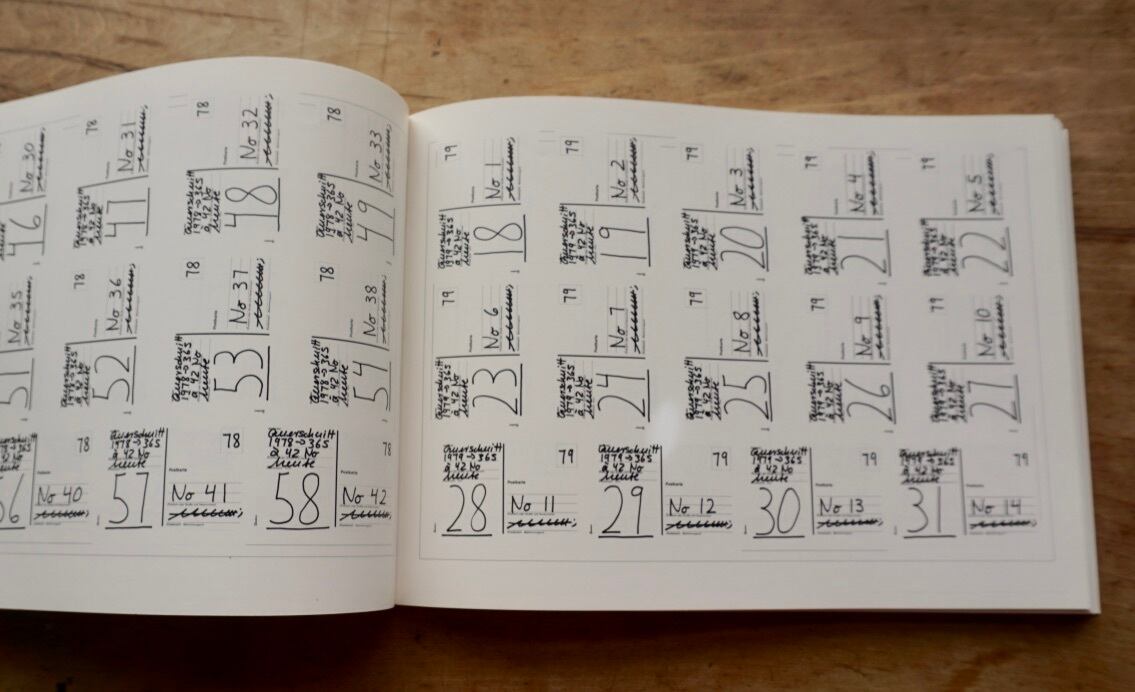 No 30
46
78
No 31
Querschnitt
1978→365
à 42 No
heute
47
78
No 32
Querschnitt
1978→365
à 42 No
heute
48
78
No 33
Querschnitt
1978→365
à 42 No
heute
49
No 35
51
78
No 36
Querschnitt
1978→365
à 42 No
heute
52
78
No 37
Querschnitt
1978→365
à 42 No
heute
53
78
No 38
Querschnitt
1978→365
à 42 No
heute
54
78
No 40
Querschnitt
1978→365
à 42 No
heute
57
78
No 41
Querschnitt
1978→365
à 42 No
heute
58
78
No 42
79
No 1
Querschnitt
1979→365
à 42 No
heute
18
79
No 2
Querschnitt
1979→365
à 42 No
heute
19
79
No 3
Querschnitt
1979→365
à 42 No
heute
20
79
No 4
Querschnitt
1979→365
à 42 No
heute
21
79
No 5
Querschnitt
1979→365
à 42 No
heute
22
79
No 6
Querschnitt
1979→365
à 42 No
heute
23
79
No 7
Querschnitt
1979→365
à 42 No
heute
24
79
No 8
Querschnitt
1979→365
à 42 No
heute
25
79
No 9
Querschnitt
1979→365
à 42 No
heute
26
79
No 10
Querschnitt
1979→365
à 42 No
heute
27
Querschnitt
1979→365
à 42 No
heute
28
79
No 11
Querschnitt
1979→365
à 42 No
heute
29
79
No 12
Querschnitt
1979→365
à 42 No
heute
30
79
No 13
Querschnitt
1979→365
à 42 No
heute
31
79
No 14